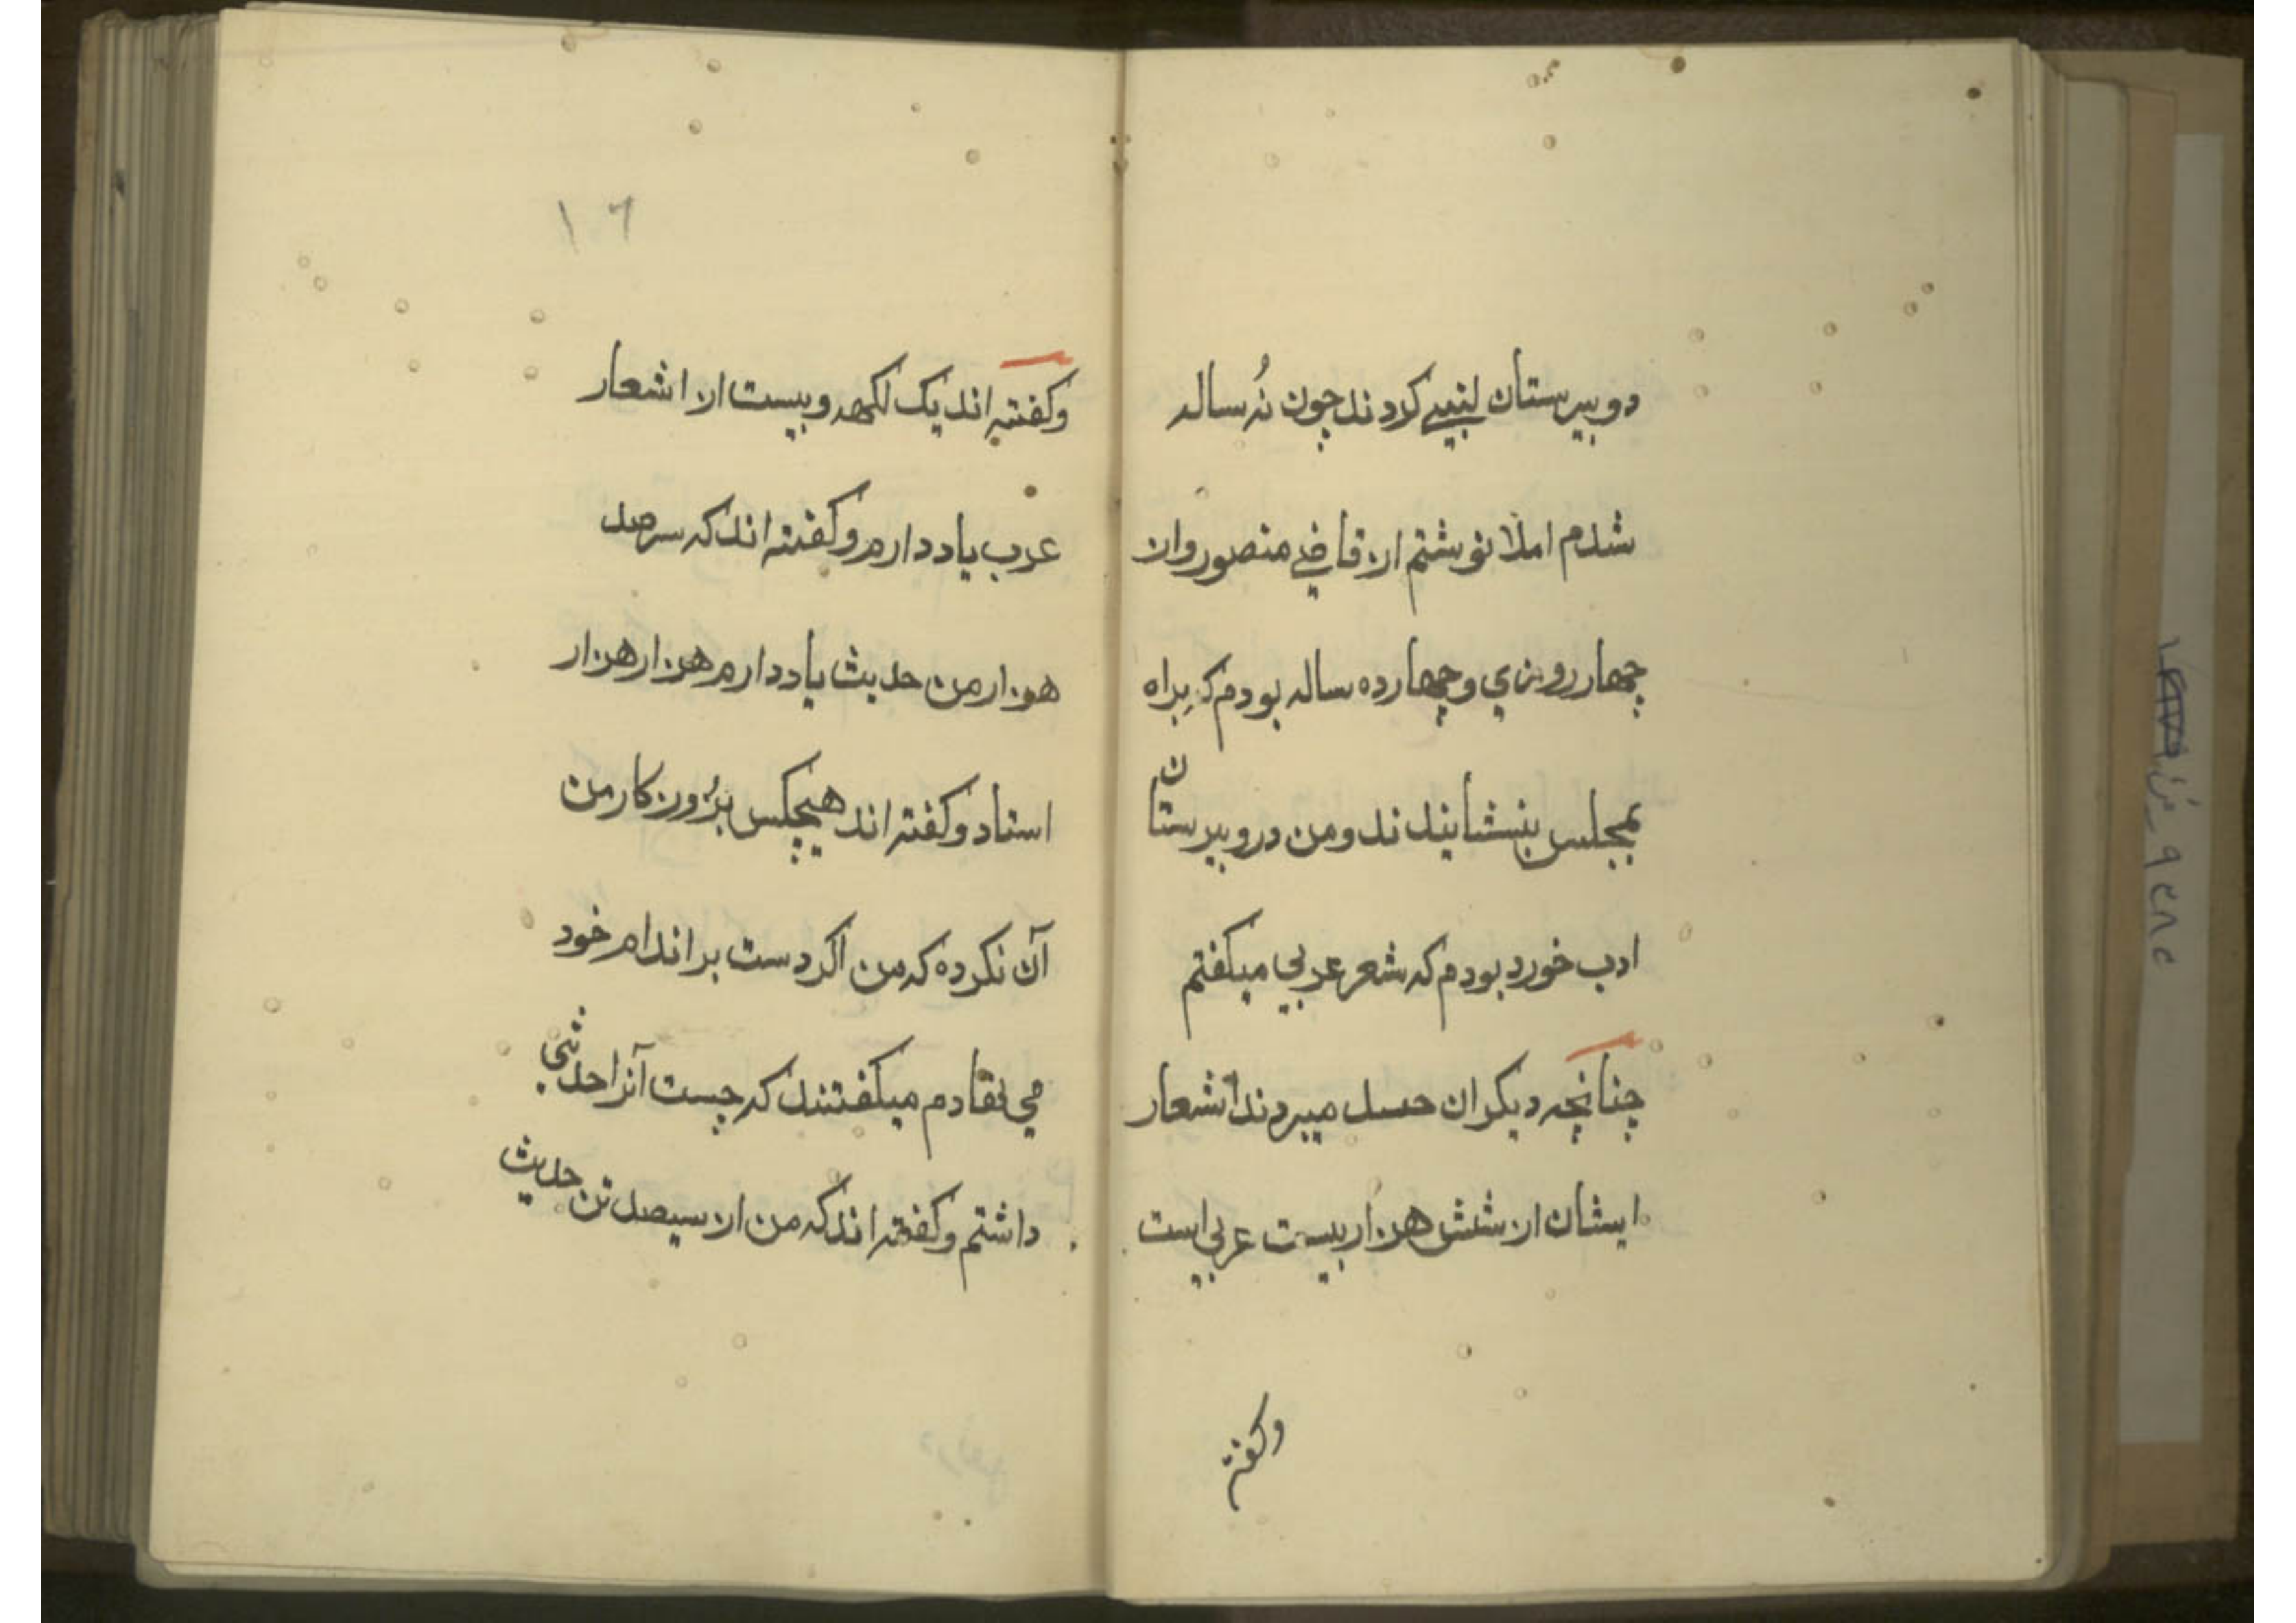 دوبیرستان لنبیے کردند چون نُه ساله
شدم املا نوشتم از قاضے منصور وان
چهار روزي و چهارده ساله بودم که براه
بمجلس بنشایندند ومن در وبیرستان
ادب خورد بودم که شعر عربی میکفتم
چنانچه دیکران حسد میبردند اشعار
ایشان از شش هزار بیست عربی است
وکفته
١٦
وکفته اند یک لکهه وبیست از اشعار
عرب یاد دارم وکفته اند که سرصد
هزار من حدیث یاد دارم هزار هزار
استاد وکفته اند هیچکس بروزرکار من
آن نکرده که من اکر دست بر اندام خود
می نقادم میکفتند که چست آنرا حدثی
داشتم وکفته اند که من از سیصد تن حدیث